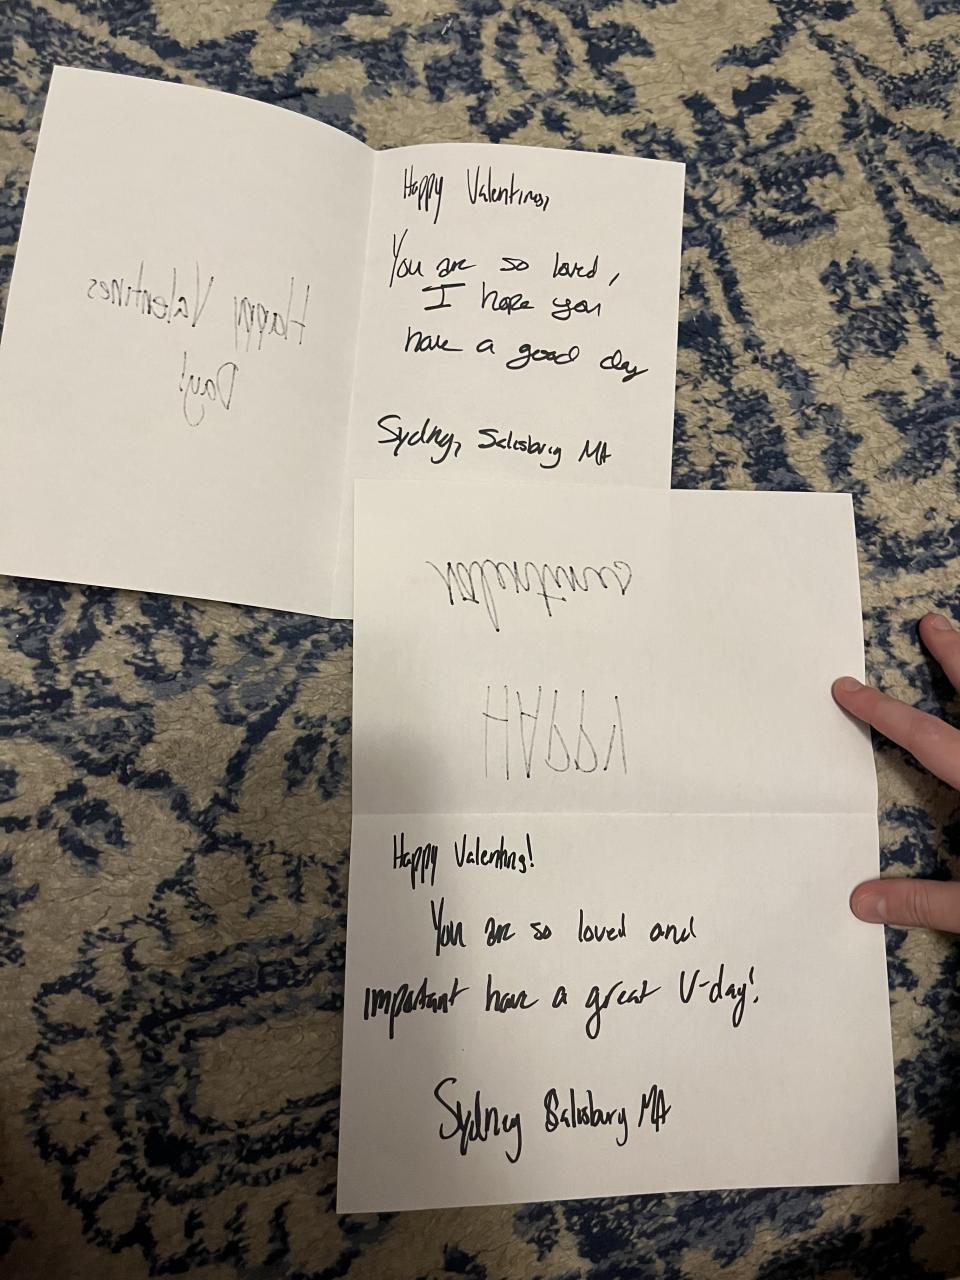 Happy Valentines
Day!
Happy Valentines,
You are so loved,
I hope you
have a good day
Sydney, Salisbury MA
Valentines
HAppy
Happy Valentines!
You are so loved and
important have a great V-day!
Sydney Salisbury MA